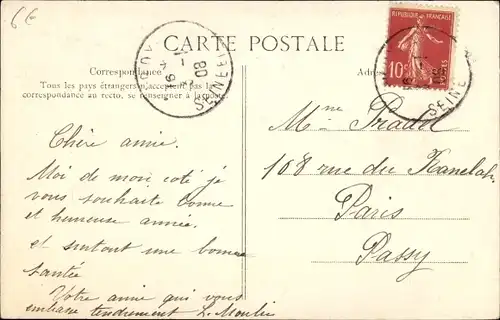 6€
CARTE POSTALE
Correspondance
Tous les pays étrangers n'acceptent pas la
correspondance au recto, se renseigner à la poste.
Chère amie.
Moi de mon coté je
vous souhaite bonne
et heureuse année.
et surtout une bonne
santée
Votre amie qui vous
embrasse tendrement L. Moulin
RÉPUBLIQUE FRANÇAISE
10
POSTES
SEINE
SEINE
08
Mme Pradel
108 rue du Ranelah
Paris
Passy